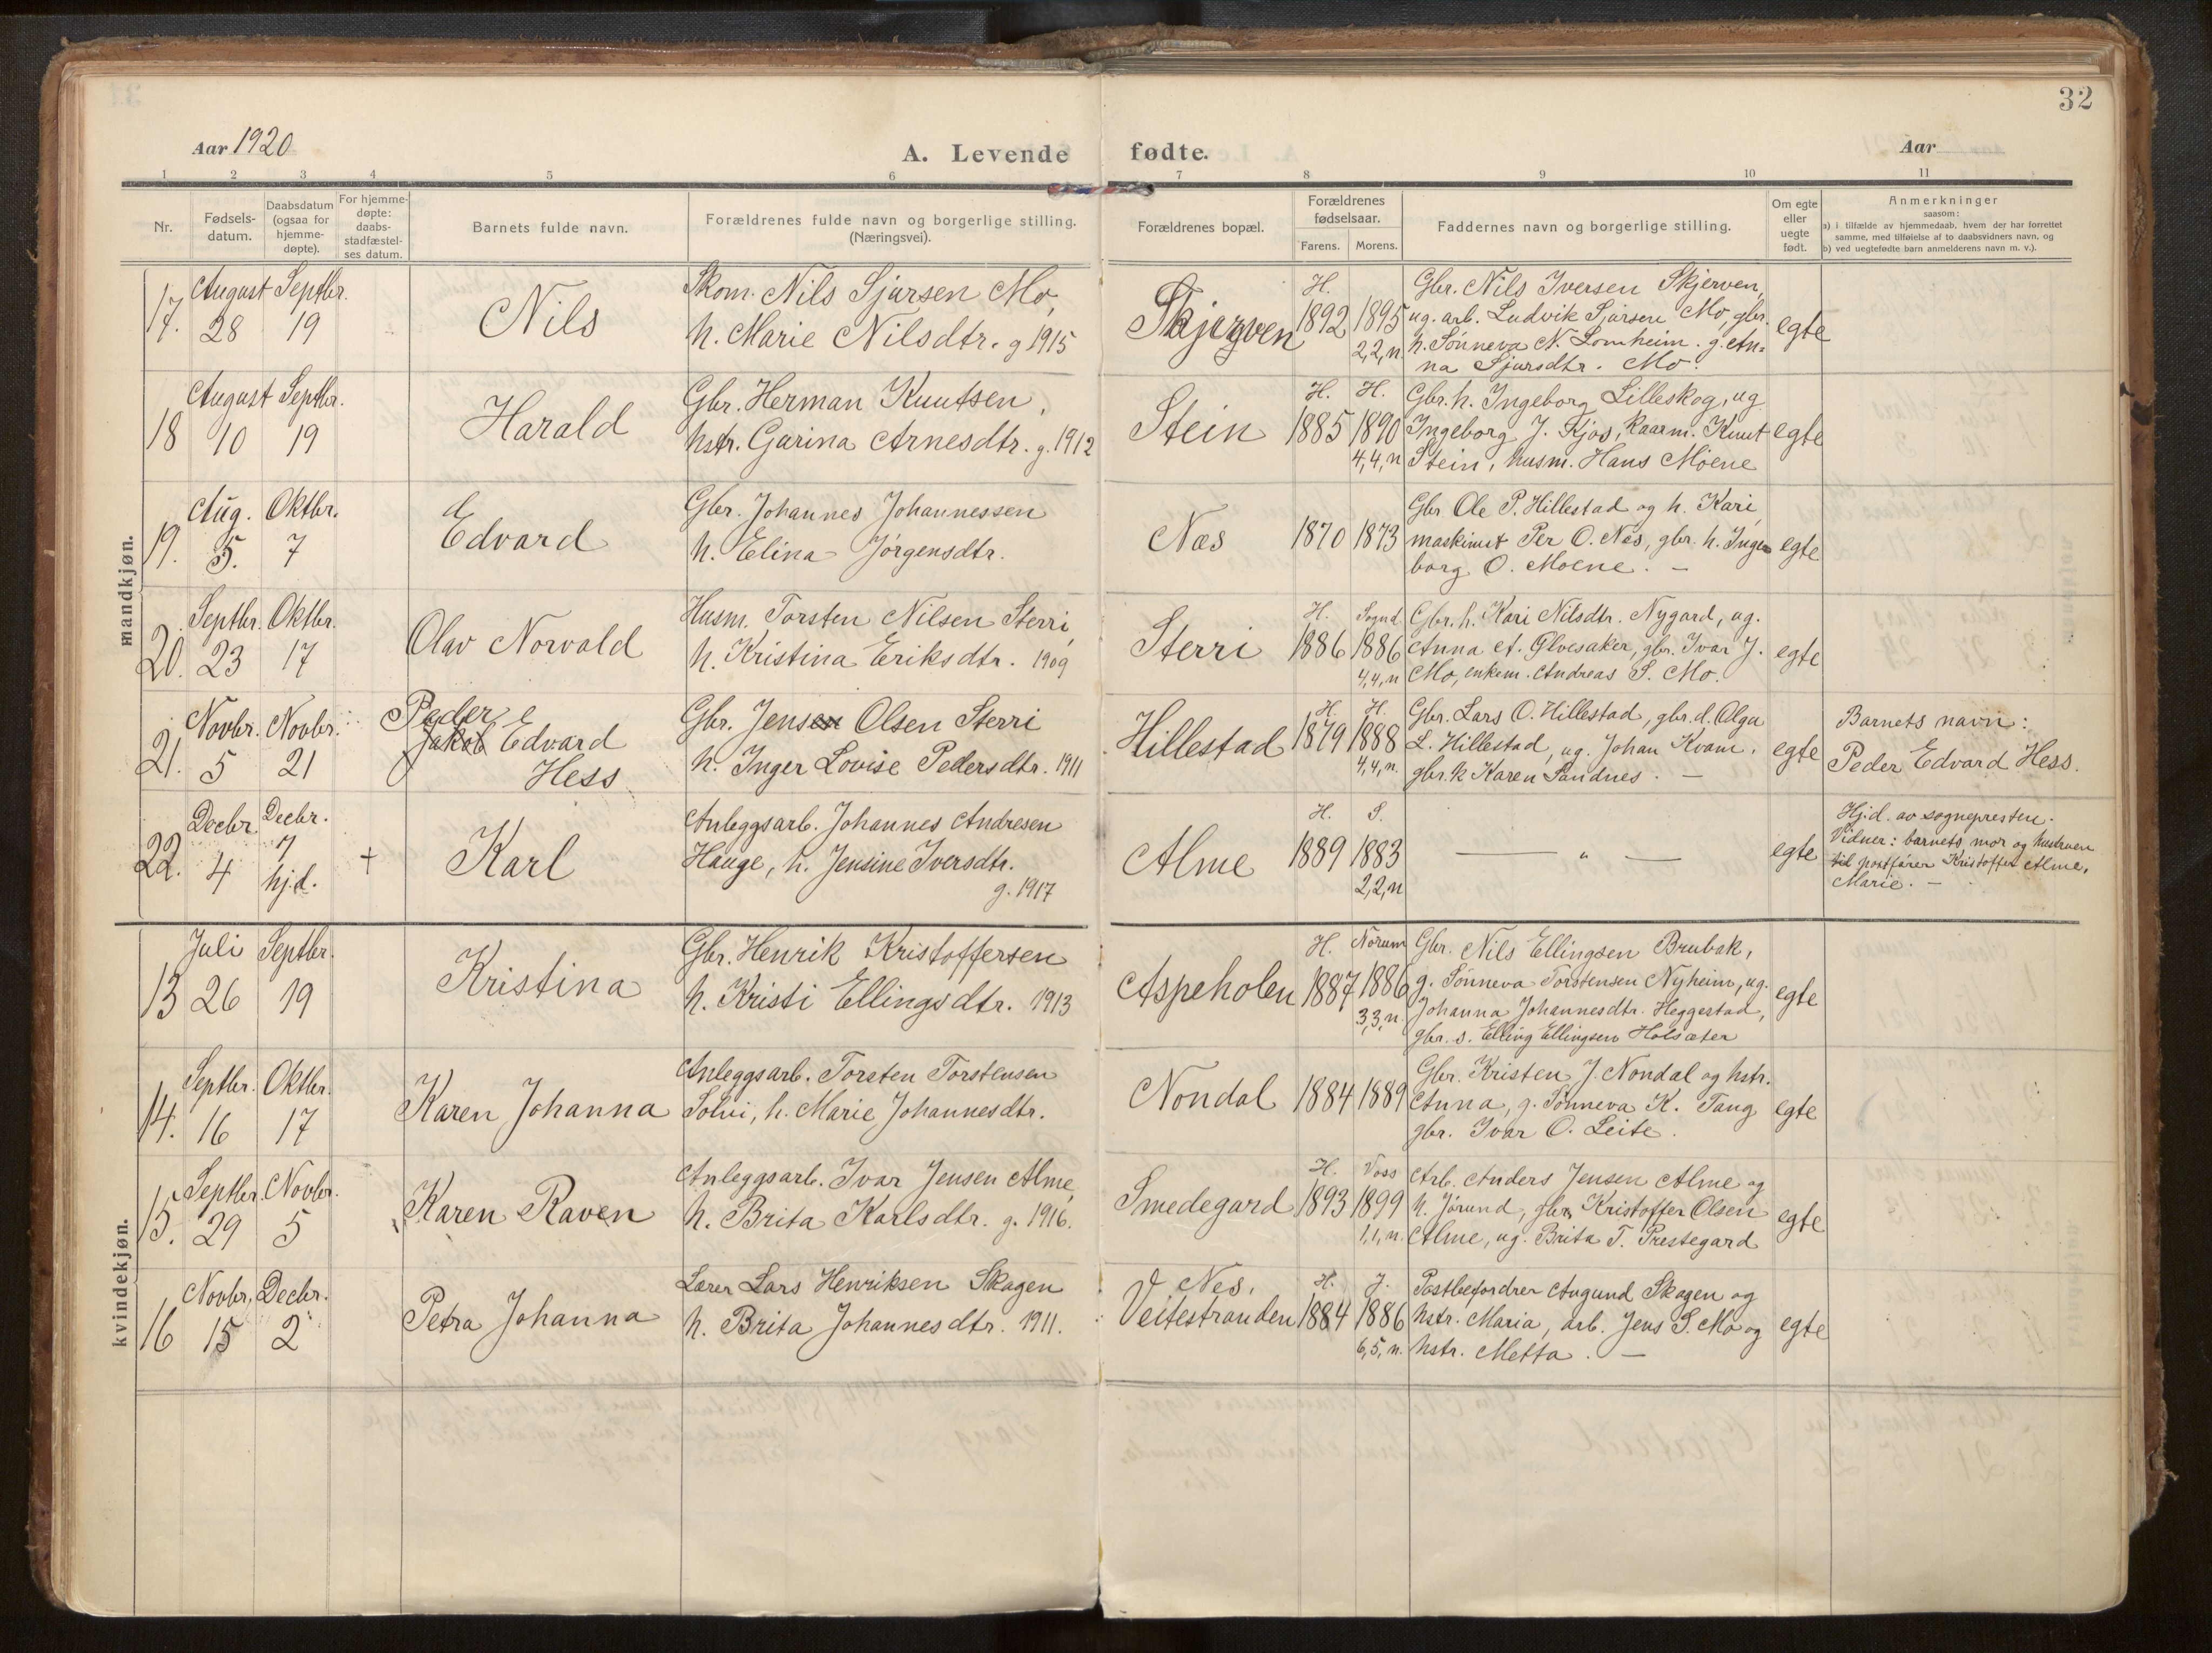 32
Aar 1920
A. Levende fødte.
Aar
1 2 3 4 5 6 7 8 9 10 11
Nr.
Fødsels-
datum.
Daabsdatum
(ogsaa for
hjemme-
døpte).
For hjemme-
døpte:
daabs-
stadfæstel-
ses datum.
Barnets fulde navn.
Forældrenes fulde navn og borgerlige stilling.
(Næringsvei).
Forældrenes bopæl.
Forældrenes
fødselsaar.
Farens. Morens.
Faddernes navn og borgerlige stilling.
Om egte
eller
uegte
født.
Anmerkninger
saasom:
a) i tilfælde av hjemmedaab, hvem der har forrettet
samme, med tilføielse af to daabsvidners navn, og
b) ved uegtefødte barn anmelderens navn m. v.).
mandkjøn.
17.
August
28
Septbr.
19
Nils
Skom. Nils Sjursen Mo,
h. Marie Nilsdtr. g 1915
Skjerven
H.
1892
1895
2,2,n.
Gbr. Nils Iversen Skjerven,
ug. arb. Ludvik Sjursen Mo, gbr.
h. Sønneva N. Lomheim. g. An-
na Sjursdtr. Mo.
egte
18
August
10
Septbr.
19
Harald
Gbr. Herman Knutsen,
hstr. Garina Arnesdtr. g. 1912
Stein
H. H.
1885 1890
4,4,n
Gbr. h. Ingeborg Lilleskog, ug
Ingeborg J. Kjos, kaarm. Knut
Stein, husm. Hans Moene
egte
19.
Aug.
5.
Oktbr.
7
d
Edvard
Gbr. Johannes Johannessen
h. Elina Jørgensdtr.
Næs
1870 1873
Gbr Ole P. Hillestad og h. Kari,
maskinist Per O. Nes, gbr. h. Inge-
borg O. Moene. —
egte
20.
Septbr.
23
Oktbr.
17
Olav Norvald
Husm. Torsten Nilsen Sterri,
h. Kristina Eriksdtr. 1909
Sterri
H. Sognd.
1886 1886
4,4,n
Gbr. h. Kari Nilsdtr. Nygard, ug.
Anna A. Glvesaker, gbr. Ivar J.
Mo, enkem. Andreas S. Mo.
egte
21.
Novbr.
5
Novbr.
21
Peder
Jakob Edvard
Hess
Gbr. Jensen Olsen Sterri
h. Inger Lovise Pedersdtr. 1911
Hillestad
H. H.
1879 1888
4,4,n.
Gbr. Lars O. Hillestad, gbr. d. Olga
L. Hillestad, ug. Johan Kvam,
gbr. k Karen Sandnes. —
egte
Barnets navn:
Peder Edvard Hess.
22.
Decbr.
4
Decbr.
7
hj.d.
+
Karl
Anleggsarb. Johannes Andresen
Hauge, h. Jensine Iversdtr.
g. 1917
Alme
H. S.
1889 1883
2,2,n
— " —
egte
Hj.d. av sognepresten.
Vidner: barnets mor og hustruen
til postfører Kristoffer Alme,
Marie. —
kvindekjøn.
13
Juli
26
Septbr.
19
Kristina
Gbr. Henrik Kristoffersen
h. Kristi Ellingsdtr. 1913
Aspeholen
H. Norum
1887 1886
3,3,n.
Gbr. Nils Ellingsen Brubak,
g. Sønneva Torstensen Nyheim, ug.
Johanna Johannesdtr. Heggestad,
gbr. s. Elling Ellingsen Holsæter
egte
14.
Septbr.
16
Oktbr.
17
Karen Johanna
Anleggsarb. Torsten Torstensen
Solvi, h. Marie Johannesdtr.
Nondal
1884 1889
Gbr. Kristen J. Nondal og hstr.
Anna, g. Sønneva K. Tang
gbr. Ivar O. Leite.
egte
15.
Septbr.
29
Novbr.
5
Karen Raven
Anleggsarb. Ivar Jensen Alme,
h. Brita Karlsdtr. g. 1916.
Smedegard
H. Voss
1893 1899
1,1,n.
Arb. Anders Jensen Alme og
h. Jørund, gbr. Kristoffer Olsen
Alme, ug. Brita T. Prestegard
egte
16
Novbr.
15
Decbr.
2
Petra Johanna
Lærer Lars Henriksen Skagen
h. Brita Johannesdtr. 1911.
V Nes.
Veitestranden
H. J.
1884 1886
6,5,n.
Postbefordrer Augund Skagen og
hstr. Maria, arb. Jens S. Mo og
hstr. Metta. —
egte